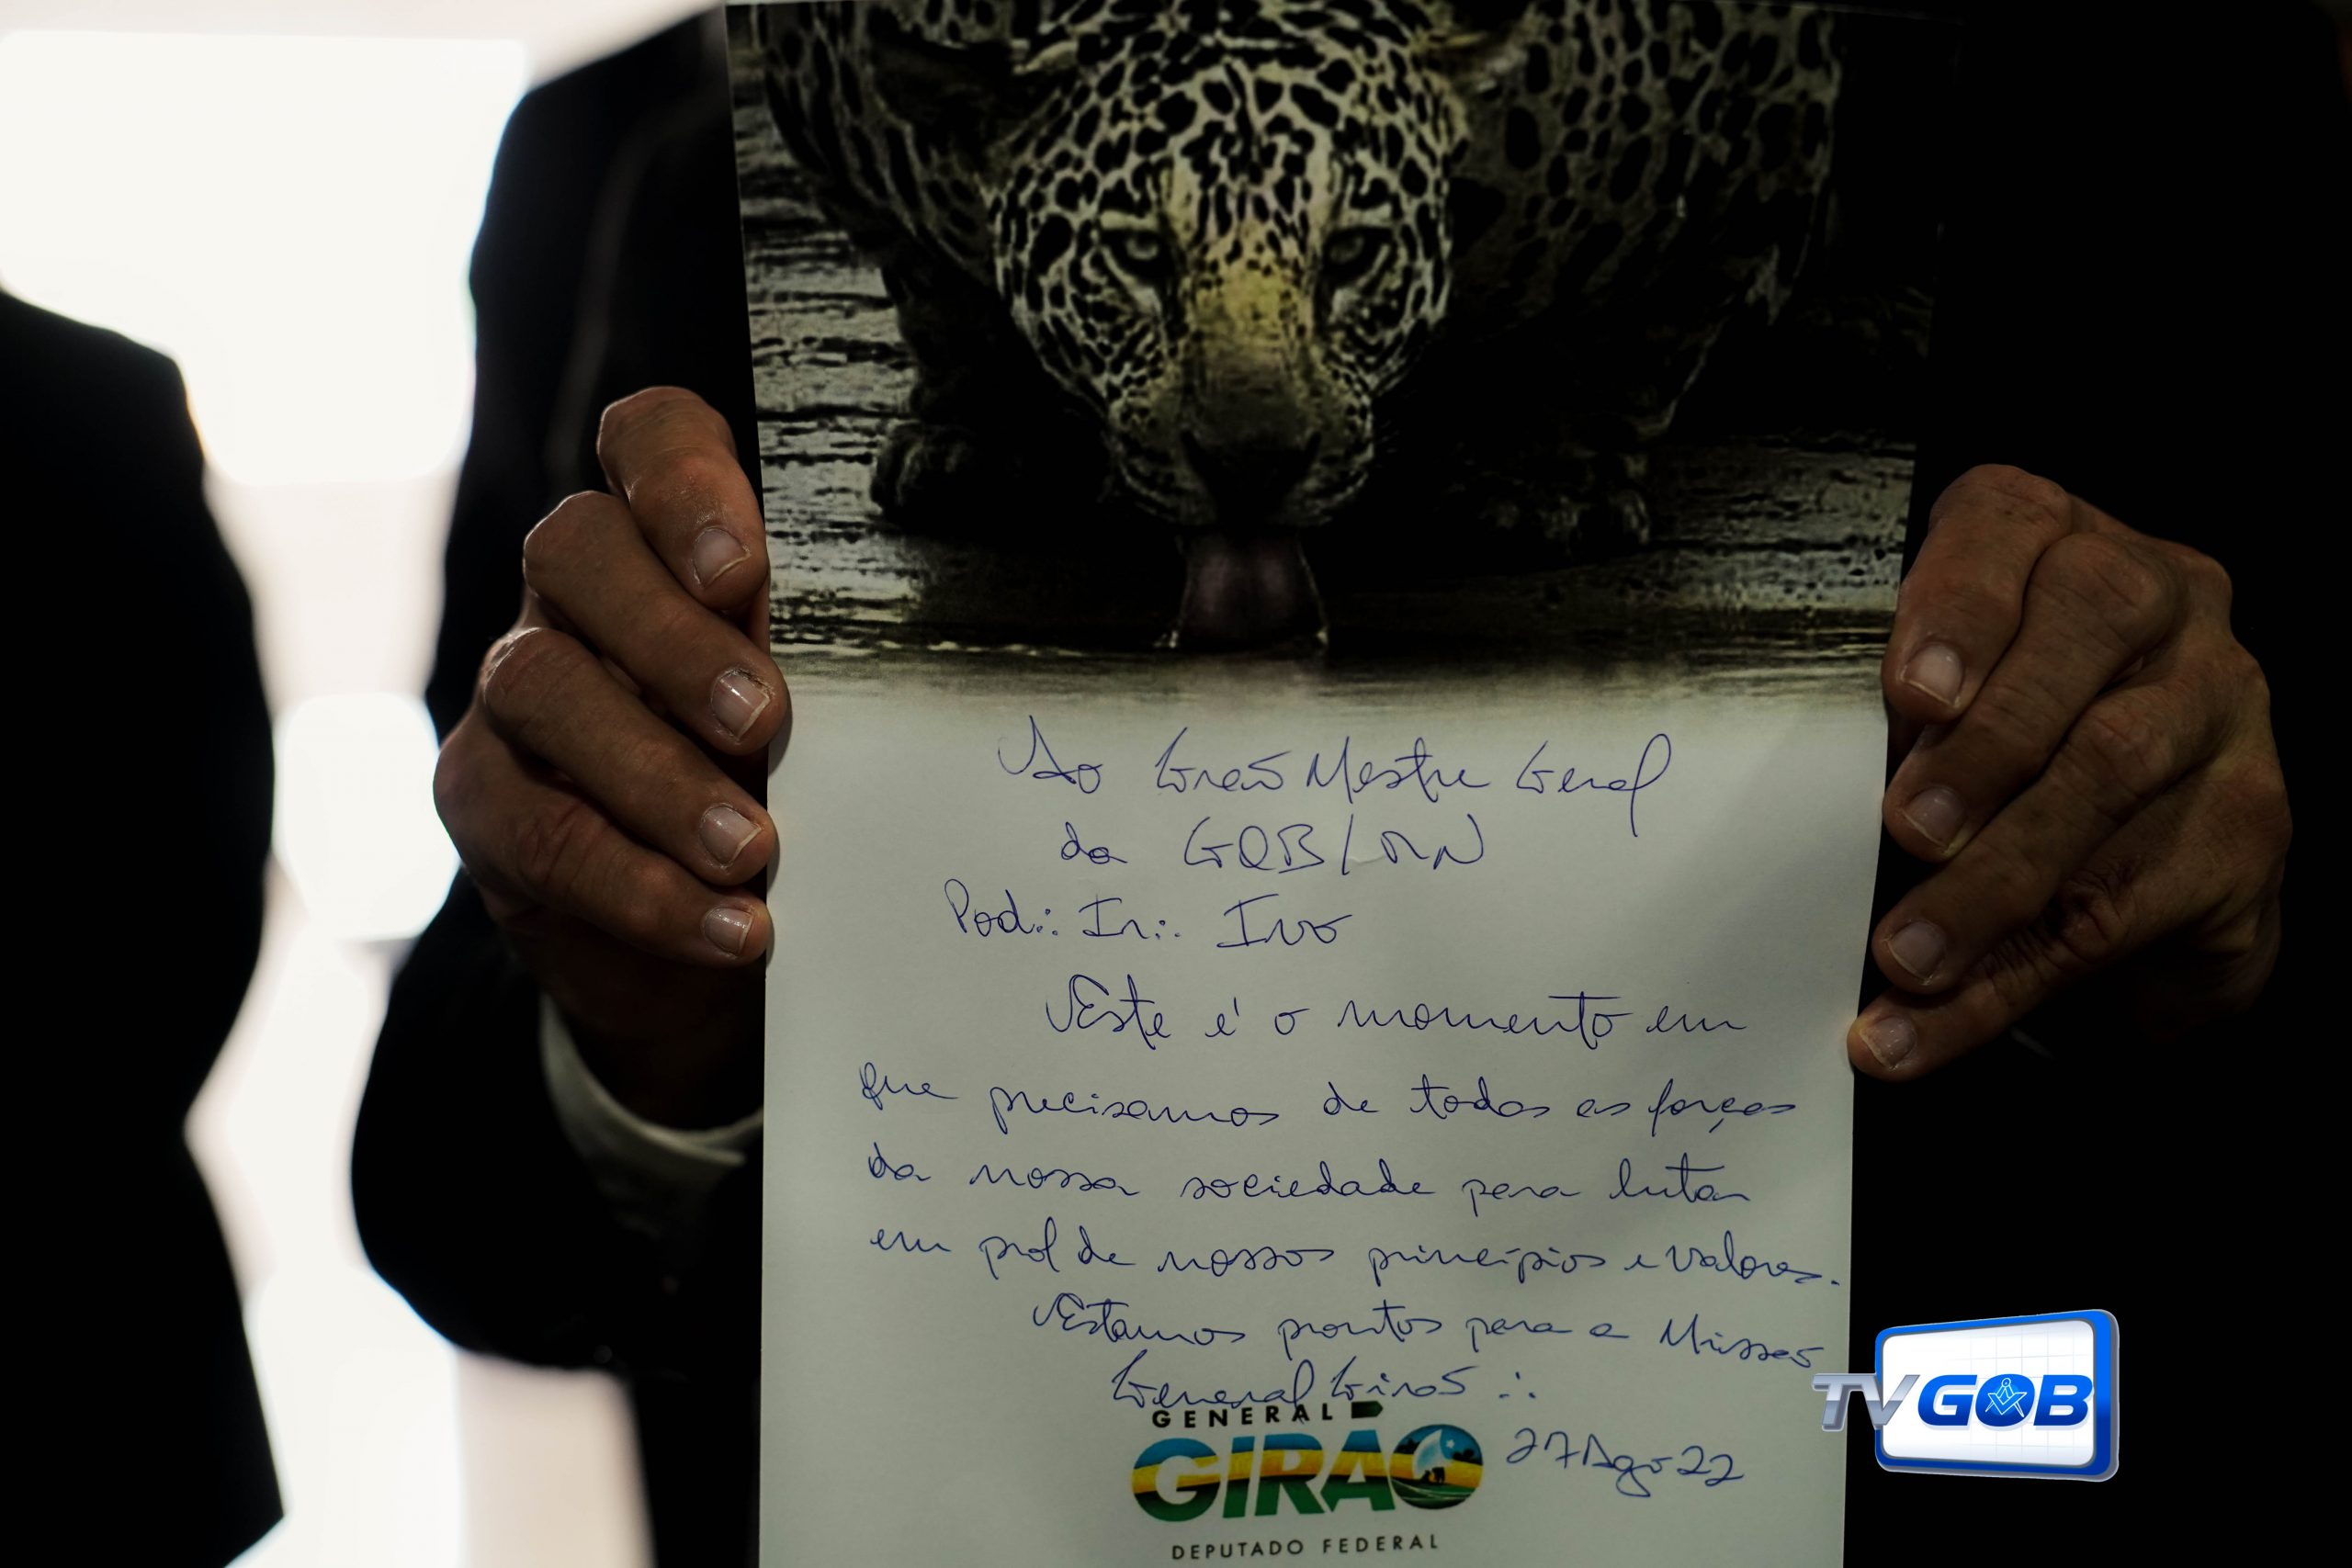 Ao Grão Mestre Geral
da GOB/RN
Pod∴ Ir∴ Ivo
Este é o momento em
que precisamos de todas as forças
da nossa sociedade para lutar
em prol de nossos princípios e valores.
Estamos prontos para a Missão
General Girão ∴
27 Ago 22
GENERAL
GIRÃO
DEPUTADO FEDERAL
TV GOB